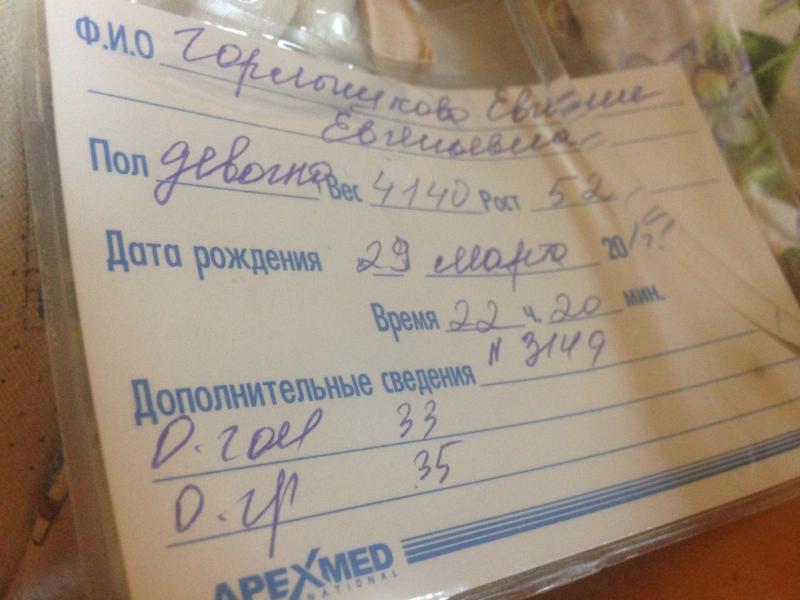 Ф.И.О Горлышкова Евгении
Евгеньевна
Пол девочка Вес 4140 Рост 52
Дата рождения 29 марта 20
Время 22 ч. 20 мин.
Дополнительные сведения N 3149
О. гол 33
О. гр 35
APEXMED
INTERNATIONAL